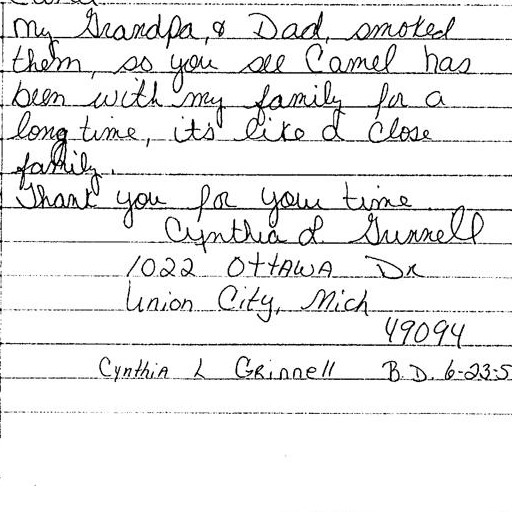 My Grandpa, & Dad, smoked
them, so you see Camel has
been with my family for a
long time, it's like a close
family.
Thank you for your time.
Cynthia L. Grinnell
1022 OTTAWA DR
Union City, Mich
49094
Cynthia L Grinnell B.D. 6-23-5